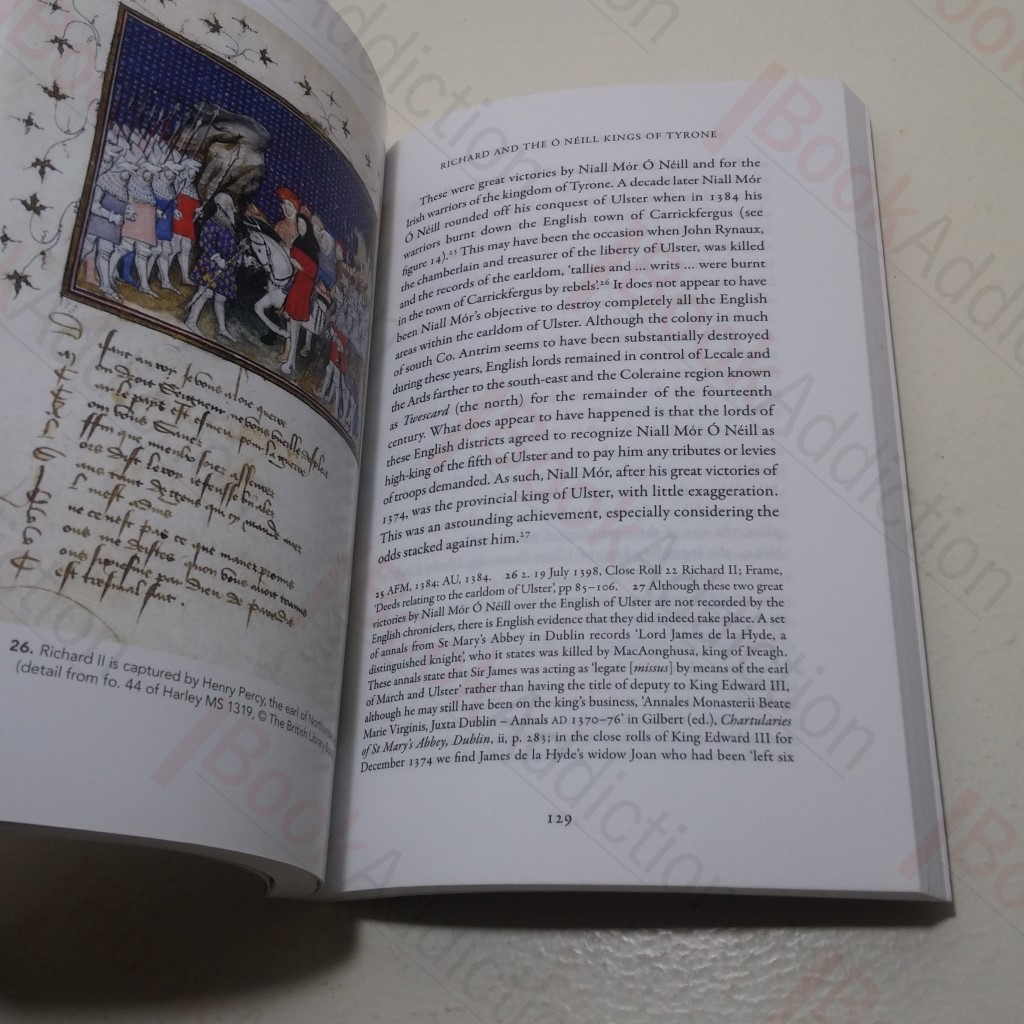 26. Richard II is captured by Henry Percy, the earl of
(detail from fo. 44 of Harley MS 1319, © The British Library
RICHARD AND THE Ó NÉILL KINGS OF TYRONE
These were great victories by Niall Mór Ó Néill and for the
Irish warriors of the kingdom of Tyrone. A decade later Niall Mór
Ó Néill rounded off his conquest of Ulster when in 1384 his
warriors burnt down the English town of Carrickfergus (see
figure 14).²⁵ This may have been the occasion when John Rynaux,
the chamberlain and treasurer of the liberty of Ulster, was killed
and the records of the earldom, ‘tallies and ... writs ... were burnt
in the town of Carrickfergus by rebels’.²⁶ It does not appear to have
been Niall Mór’s objective to destroy completely all the English
areas within the earldom of Ulster. Although the colony in much
of south Co. Antrim seems to have been substantially destroyed
during these years, English lords remained in control of Lecale and
the Ards farther to the south-east and the Coleraine region known
as Twescard (the north) for the remainder of the fourteenth
century. What does appear to have happened is that the lords of
these English districts agreed to recognize Niall Mór Ó Néill as
high-king of the fifth of Ulster and to pay him any tributes or levies
of troops demanded. As such, Niall Mór, after his great victories of
1374, was the provincial king of Ulster, with little exaggeration.
This was an astounding achievement, especially considering the
odds stacked against him.²⁷
25 AFM, 1384; AU, 1384. 26 2. 19 July 1398, Close Roll 22 Richard II; Frame,
‘Deeds relating to the earldom of Ulster’, pp 85–106. 27 Although these two great
victories by Niall Mór Ó Néill over the English of Ulster are not recorded by the
English chroniclers, there is English evidence that they did indeed take place. A set
of annals from St Mary’s Abbey in Dublin records ‘Lord James de la Hyde, a
distinguished knight’, who it states was killed by MacAonghusa, king of Iveagh.
These annals state that Sir James was acting as ‘legate [missus] by means of the earl
of March and Ulster’ rather than having the title of deputy to King Edward III,
although he may still have been on the king’s business, ‘Annales Monasterii Beate
Marie Virginis, Juxta Dublin – Annals AD 1370–76’ in Gilbert (ed.), Chartularies
of St Mary’s Abbey, Dublin, ii, p. 283; in the close rolls of King Edward III for
December 1374 we find James de la Hyde’s widow Joan who had been ‘left six
129